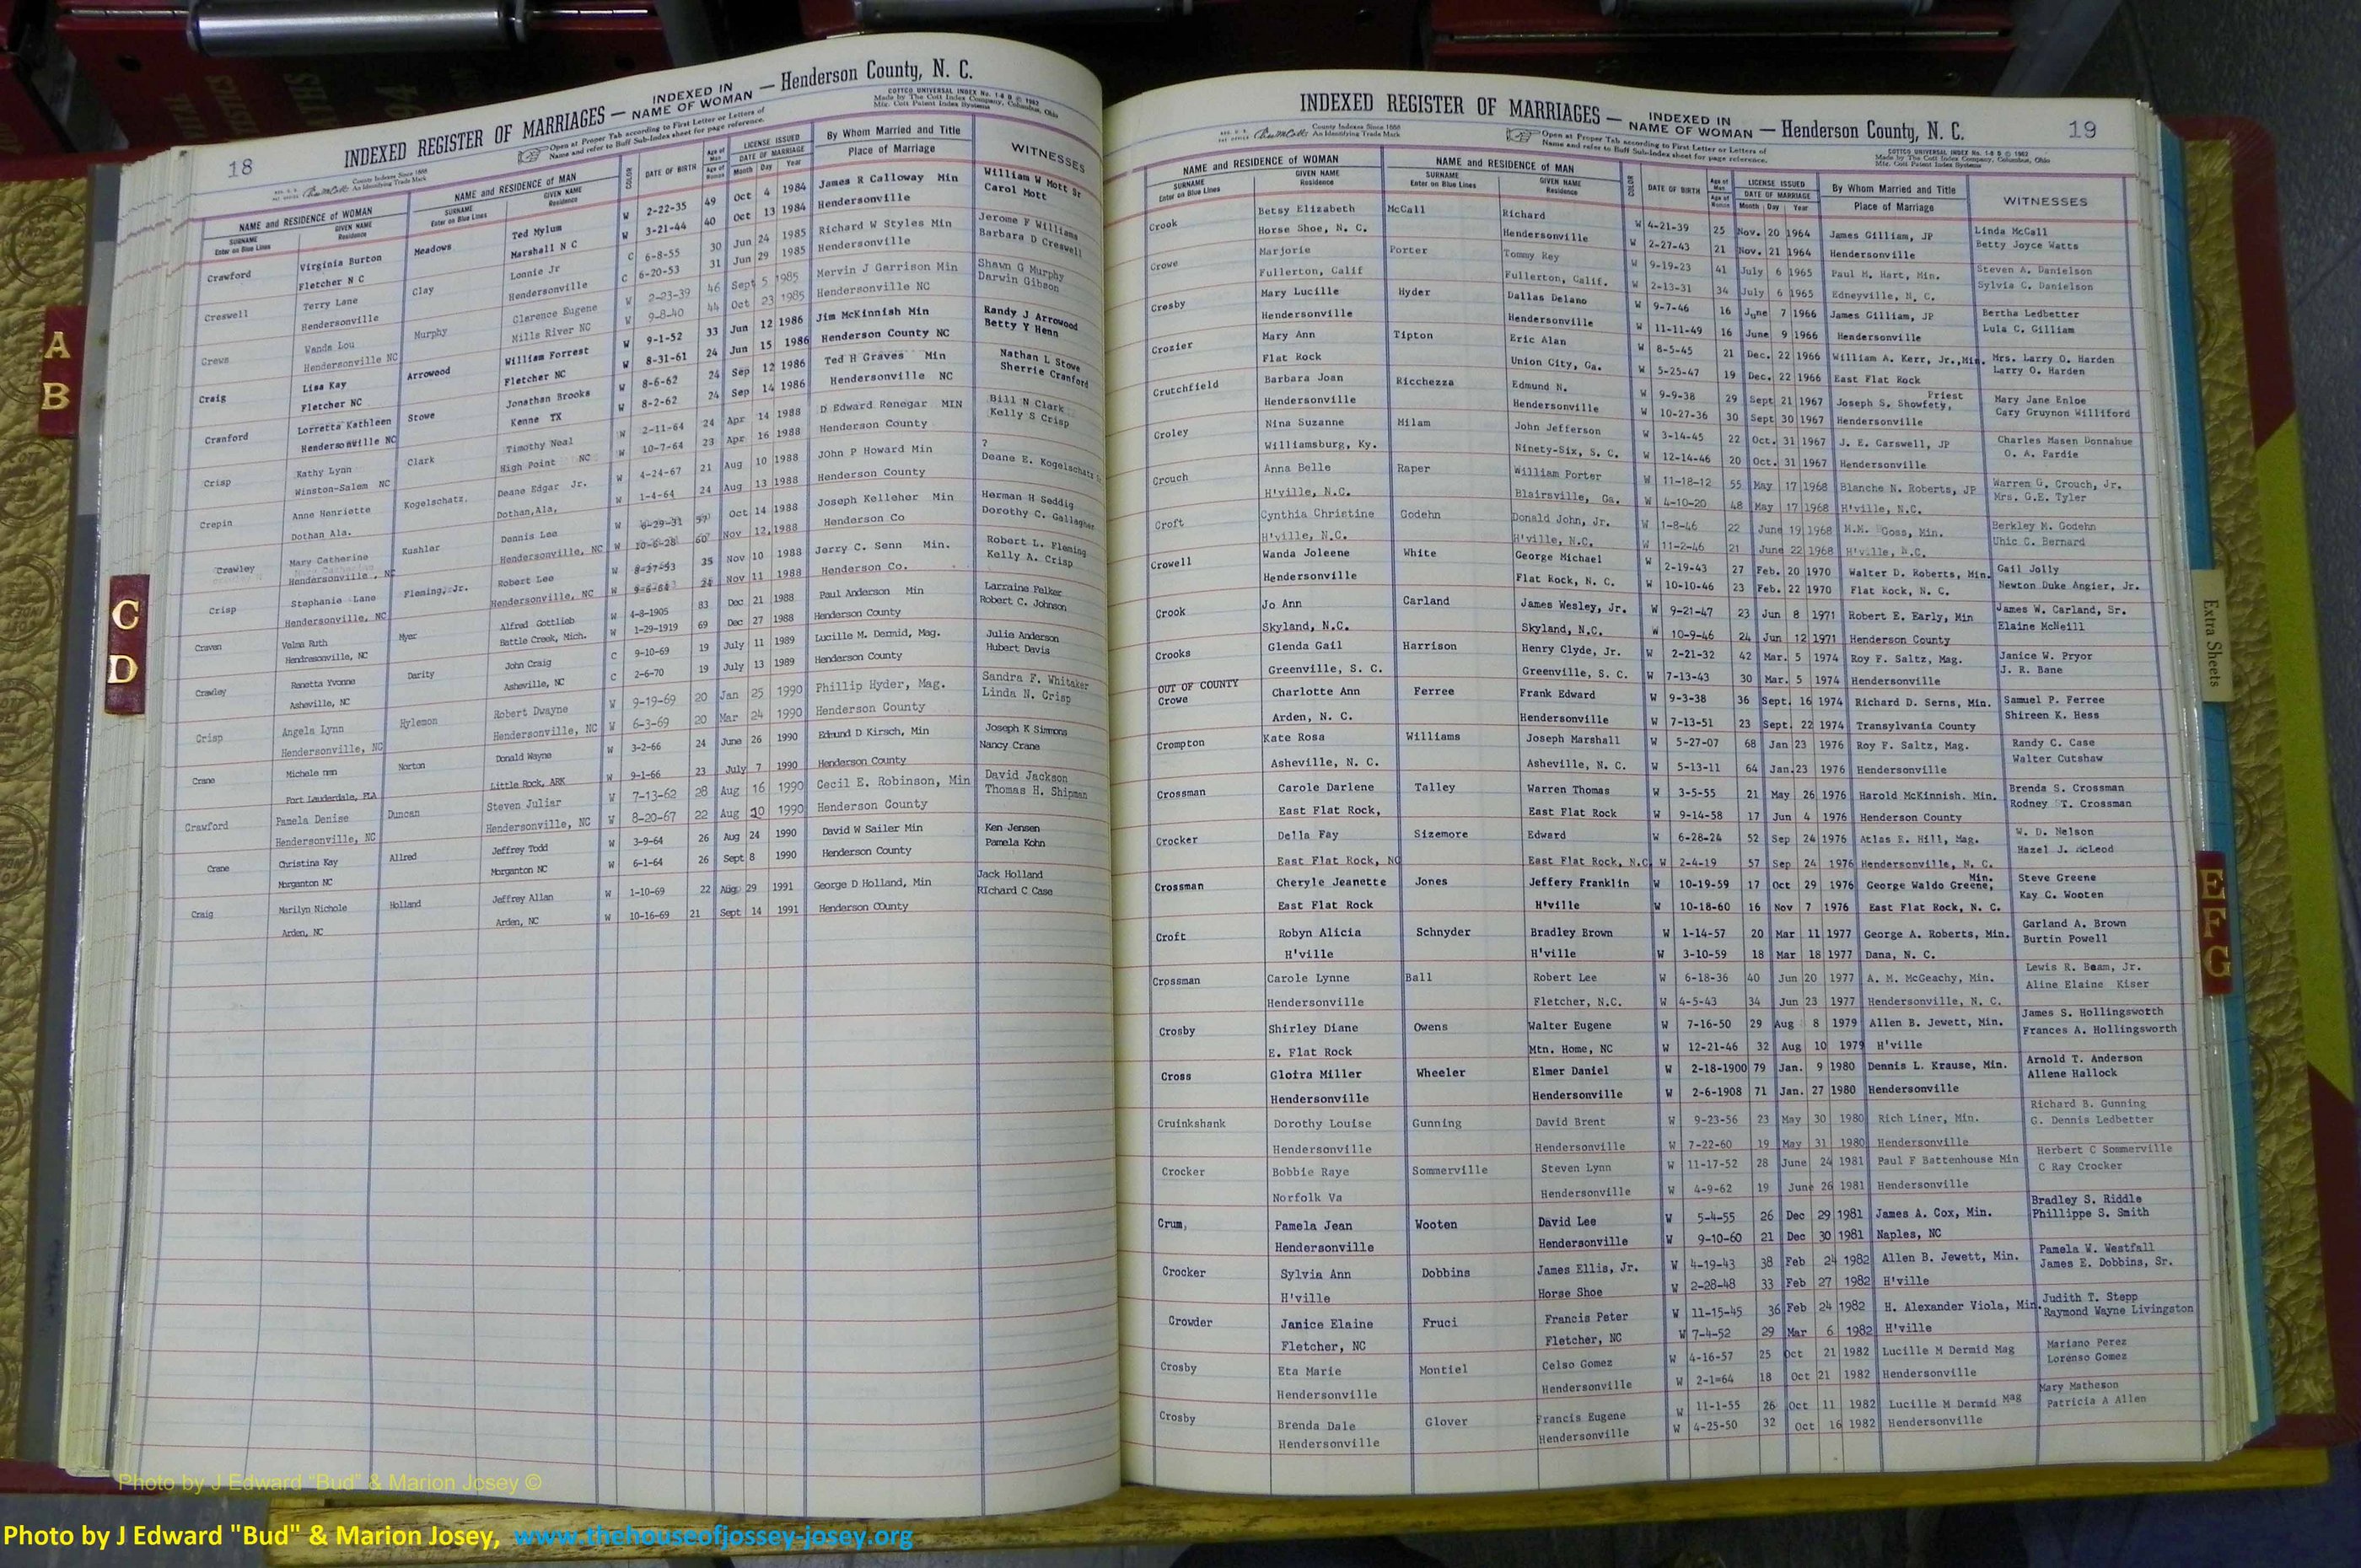 18
INDEXED REGISTER OF MARRIAGES — INDEXED IN NAME OF WOMAN — Henderson County, N. C.
Open at Proper Tab according to First Letter or Letters of
Name and refer to Buff Sub-Index sheet for page reference.
COTTCO UNIVERSAL INDEX No. 1-6 B © 1962
Made by The Cott Index Company, Columbus, Ohio
Mfg. Cott Patent Index Systems
County Indexes Since 1888
An Identifying Trade Mark
NAME and RESIDENCE OF WOMAN NAME and RESIDENCE OF MAN COLOR DATE OF BIRTH Age of Man Age of Woman LICENSE ISSUED DATE OF MARRIAGE By Whom Married and Title WITNESSES
SURNAME Enter on Blue Lines GIVEN NAME Residence SURNAME Enter on Blue Lines GIVEN NAME Residence Month Day Year Place of Marriage
Crawford Virginia Burton Meadows Ted Mylum W 2-22-35 49 Oct 4 1984 James R Calloway Min William W Mott Sr
Fletcher N C Marshall N C W 3-21-44 40 Oct 13 1984 Hendersonville Carol Mott
Creswell Terry Lane Clay Lonnie Jr C 6-8-55 30 Jun 24 1985 Richard W Styles Min Jerome F Williams
Hendersonville Hendersonville C 6-20-53 31 Jun 29 1985 Hendersonville Barbara D Creswell
Crews Wanda Lou Murphy Clarence Eugene W 2-23-39 46 Sept 5 1985 Mervin J Garrison Min Shawn G Murphy
Hendersonville NC Mills River NC W 9-8-40 44 Oct 23 1985 Hendersonville NC Darwin Gibson
Craig Lisa Kay Arrowood William Forrest W 9-1-52 33 Jun 12 1986 Jim McKinnish Min Randy J Arrowood
Fletcher NC Fletcher NC W 8-31-61 24 Jun 15 1986 Henderson County NC Betty Y Henn
Cranford Lorretta Kathleen Stowe Jonathan Brooks W 8-6-62 24 Sep 12 1986 Ted H Graves Min Nathan L Stowe
Hendersonville NC Kenne TX W 8-2-62 24 Sep 14 1986 Hendersonville NC Sherrie Cranford
Crisp Kathy Lynn Clark Timothy Neal W 2-11-64 24 Apr 14 1988 D Edward Renegar MIN Bill N Clark
Winston-Salem NC High Point NC W 10-7-64 23 Apr 16 1988 Henderson County Kelly S Crisp
Crepin Anne Henriette Kogelschatz, Deane Edgar Jr. W 4-24-67 21 Aug 10 1988 John P Howard Min ?
Dothan Ala. Dothan,Ala, W 1-4-64 24 Aug 13 1988 Henderson County Deane E. Kogelschatz
Crawley Mary Catherine Kushler Dennis Lee W 6-29-31 57 Oct 14 1988 Joseph Kelleher Min Herman H Seddig
Hendersonville , NC Hendersonville, NC W 10-6-28 60 Nov 12,1988 Henderson Co Dorothy C. Gallagher
Crisp Stephanie Lane Fleming, Jr. Robert Lee W 8-27-53 35 Nov 10 1988 Jerry C. Senn Min. Robert L. Fleming
Hendersonville, NC Hendersonville, NC W 9-6-64 24 Nov 11 1988 Henderson Co. Kelly A. Crisp
Craven Velma Ruth Myer Alfred Gottlieb W 4-8-1905 83 Dec 21 1988 Paul Anderson Min Larraine Felker
Hendresonville, NC Battle Creek, Mich. W 1-29-1919 69 Dec 27 1988 Henderson County Robert C. Johnson
Crawley Renetta Yvonne Darity John Craig C 9-10-69 19 July 11 1989 Lucille M. Dermid, Mag. Julie Anderson
Asheville, NC Asheville, NC C 2-6-70 19 July 13 1989 Henderson County Hubert Davis
Crisp Angela Lynn Hylemon Robert Dwayne W 9-19-69 20 Jan 25 1990 Phillip Hyder, Mag. Sandra F. Whitaker
Hendersonville, NC Hendersonville, NC W 6-3-69 20 Mar 24 1990 Henderson County Linda N. Crisp
Crane Michele nmn Norton Donald Wayne W 3-2-66 24 June 26 1990 Edmund D Kirsch, Min Joseph K Simmons
Fort Lauderdale, FLA Little Rock, ARK W 9-1-66 23 July 7 1990 Henderson County Nancy Crane
Crawford Pamela Denise Duncan Steven Juliar W 7-13-62 28 Aug 16 1990 Cecil E. Robinson, Min David Jackson
Hendersonville, NC Hendersonville, NC W 8-20-67 22 Aug 20 1990 Henderson County Thomas H. Shipman
Crane Christina Kay Allred Jeffrey Todd W 3-9-64 26 Aug 24 1990 David W Sailer Min Ken Jensen
Morganton NC Morganton NC W 6-1-64 26 Sept 8 1990 Henderson County Pamela Kohn
Craig Marilyn Nichole Holland Jeffrey Allan W 1-10-69 22 Aug 29 1991 George D Holland, Min Jack Holland
Arden, NC Arden, NC W 10-16-69 21 Sept 14 1991 Henderson COunty RIchard C Case
A
B
C
D
INDEXED REGISTER OF MARRIAGES — INDEXED IN NAME OF WOMAN — Henderson County, N. C.
19
County Indexes Since 1888
An Identifying Trade Mark
Open at Proper Tab according to First Letter or Letters of
Name and refer to Buff Sub-Index sheet for page reference.
COTTCO UNIVERSAL INDEX No. 1-6 B © 1962
Made by The Cott Index Company, Columbus, Ohio
Mfg. Cott Patent Index Systems
NAME and RESIDENCE OF WOMAN NAME and RESIDENCE OF MAN COLOR DATE OF BIRTH Age of Man Age of Woman LICENSE ISSUED DATE OF MARRIAGE By Whom Married and Title WITNESSES
SURNAME Enter on Blue Lines GIVEN NAME Residence SURNAME Enter on Blue Lines GIVEN NAME Residence Month Day Year Place of Marriage
Crook Betsy Elizabeth McCall Richard W 4-21-39 25 Nov. 20 1964 James Gilliam, JP Linda McCall
Horse Shoe, N. C. Hendersonville W 2-27-43 21 Nov. 21 1964 Hendersonville Betty Joyce Watts
Crowe Marjorie Porter Tommy Rey W 9-19-23 41 July 6 1965 Paul M. Hart, Min. Steven A. Danielson
Fullerton, Calif Fullerton, Calif. W 2-13-31 34 July 6 1965 Edneyville, N. C. Sylvia C. Danielson
Crosby Mary Lucille Hyder Dallas Delano W 9-7-46 16 June 7 1966 James Gilliam, JP Bertha Ledbetter
Hendersonville Hendersonville W 11-11-49 16 June 9 1966 Hendersonville Lula C. Gilliam
Crozier Mary Ann Tipton Eric Alan W 8-5-45 21 Dec. 22 1966 William A. Kerr, Jr.,Min. Mrs. Larry O. Harden
Flat Rock Union City, Ga. W 5-25-47 19 Dec. 22 1966 East Flat Rock Larry O. Harden
Crutchfield Barbara Joan Ricchezza Edmund N. W 9-9-38 29 Sept 21 1967 Joseph S. Showfety, Priest Mary Jane Enloe
Hendersonville Hendersonville W 10-27-36 30 Sept 30 1967 Hendersonville Cary Gruynon Williford
Croley Nina Suzanne Milam John Jefferson W 3-14-45 22 Oct. 31 1967 J. E. Carswell, JP Charles Masen Donnahue
Williamsburg, Ky. Ninety-Six, S. C. W 12-14-46 20 Oct. 31 1967 Hendersonville O. A. Pardie
Crouch Anna Belle Raper William Porter W 11-18-12 55 May 17 1968 Blanche N. Roberts, JP Warren G. Crouch, Jr.
H'ville, N.C. Blairsville, Ga. W 4-10-20 48 May 17 1968 H'ville, N.C. Mrs. G.E. Tyler
Croft Cynthia Christine Godehn Donald John, Jr. W 1-8-46 22 June 19 1968 M.M. Goss, Min. Berkley M. Godehn
H'ville, N.C. H'ville, N.C. W 11-2-46 21 June 22 1968 H'ville, N.C. Uhic C. Bernard
Crowell Wanda Joleene White George Michael W 2-19-43 27 Feb. 20 1970 Walter D. Roberts, Min. Gail Jolly
Hendersonville Flat Rock, N. C. W 10-10-46 23 Feb. 22 1970 Flat Rock, N. C. Newton Duke Angier, Jr.
Crook Jo Ann Carland James Wesley, Jr. W 9-21-47 23 Jun 8 1971 Robert E. Early, Min James W. Carland, Sr.
Skyland, N.C. Skyland, N.C. W 10-9-46 24 Jun 12 1971 Henderson County Elaine McNeill
Crooks Glenda Gail Harrison Henry Clyde, Jr. W 2-21-32 42 Mar. 5 1974 Roy F. Saltz, Mag. Janice W. Pryor
Greenville, S. C. Greenville, S. C. W 7-13-43 30 Mar. 5 1974 Hendersonville J. R. Bane
OUT OF COUNTY
Crowe Charlotte Ann Ferree Frank Edward W 9-3-38 36 Sept. 16 1974 Richard D. Serns, Min. Samuel P. Ferree
Arden, N. C. Hendersonville W 7-13-51 23 Sept. 22 1974 Transylvania County Shireen K. Hess
Crompton Kate Rosa Williams Joseph Marshall W 5-27-07 68 Jan 23 1976 Roy F. Saltz, Mag. Randy C. Case
Asheville, N. C. Asheville, N. C. W 5-13-11 64 Jan.23 1976 Hendersonville Walter Cutshaw
Crossman Carole Darlene Talley Warren Thomas W 3-5-55 21 May 26 1976 Harold McKinnish. Min. Brenda S. Crossman
East Flat Rock, East Flat Rock W 9-14-58 17 Jun 4 1976 Henderson County Rodney T. Crossman
Crocker Della Fay Sizemore Edward W 6-28-24 52 Sep 24 1976 Atlas R. Hill, Mag. W. D. Nelson
East Flat Rock, NC East Flat Rock, N.C. W 2-4-19 57 Sep 24 1976 Hendersonville, N. C. Hazel J. McLeod
Crossman Cheryle Jeanette Jones Jeffery Franklin W 10-19-59 17 Oct 29 1976 George Waldo Greene, Min. Steve Greene
East Flat Rock H'ville W 10-18-60 16 Nov 7 1976 East Flat Rock, N. C. Kay C. Wooten
Croft Robyn Alicia Schnyder Bradley Brown W 1-14-57 20 Mar 11 1977 George A. Roberts, Min. Garland A. Brown
H'ville H'ville W 3-10-59 18 Mar 18 1977 Dana, N. C. Burtin Powell
Crossman Carole Lynne Ball Robert Lee W 6-18-36 40 Jun 20 1977 A. M. McGeachy, Min. Lewis R. Beam, Jr.
Hendersonville Fletcher, N.C. W 4-5-43 34 Jun 23 1977 Hendersonville, N. C. Aline Elaine Kiser
Crosby Shirley Diane Owens Walter Eugene W 7-16-50 29 Aug 8 1979 Allen B. Jewett, Min. James S. Hollingsworth
E. Flat Rock Mtn. Home, NC W 12-21-46 32 Aug 10 1979 H'ville Frances A. Hollingsworth
Cross Gloira Miller Wheeler Elmer Daniel W 2-18-1900 79 Jan. 9 1980 Dennis L. Krause, Min. Arnold T. Anderson
Hendersonville Hendersonville W 2-6-1908 71 Jan. 27 1980 Hendersonville Allene Hallock
Cruinkshank Dorothy Louise Gunning David Brent W 9-23-56 23 May 30 1980 Rich Liner, Min. Richard B. Gunning
Hendersonville Hendersonville W 7-22-60 19 May 31 1980 Hendersonville G. Dennis Ledbetter
Crocker Bobbie Raye Sommerville Steven Lynn W 11-17-52 28 June 24 1981 Paul F Battenhouse Min Herbert C Sommerville
Norfolk Va Hendersonville W 4-9-62 19 June 26 1981 Hendersonville C Ray Crocker
Crum, Pamela Jean Wooten David Lee W 5-4-55 26 Dec 29 1981 James A. Cox, Min. Bradley S. Riddle
Hendersonville Hendersonville W 9-10-60 21 Dec 30 1981 Naples, NC Phillippe S. Smith
Crocker Sylvia Ann Dobbins James Ellis, Jr. W 4-19-43 38 Feb 24 1982 Allen B. Jewett, Min. Pamela W. Westfall
H'ville Horse Shoe W 2-28-48 33 Feb 27 1982 H'ville James E. Dobbins, Sr.
Crowder Janice Elaine Fruci Francis Peter W 11-15-45 36 Feb 24 1982 H. Alexander Viola, Min. Judith T. Stepp
Fletcher, NC Fletcher, NC W 7-4-52 29 Mar 6 1982 H'ville Raymond Wayne Livingston
Crosby Eta Marie Montiel Celso Gomez W 4-16-57 25 Oct 21 1982 Lucille M Dermid Mag Mariano Perez
Hendersonville Hendersonville W 2-1=64 18 Oct 21 1982 Hendersonville Lorenso Gomez
Crosby Brenda Dale Glover Francis Eugene W 11-1-55 26 Oct 11 1982 Lucille M Dermid Mag Mary Matheson
Hendersonville Hendersonville W 4-25-50 32 Oct 16 1982 Hendersonville Patricia A Allen
Extra Sheets
E
F
G
Photo by J Edward "Bud" & Marion Josey ©
Photo by J Edward "Bud" & Marion Josey, www.thehouseofjossey-josey.org